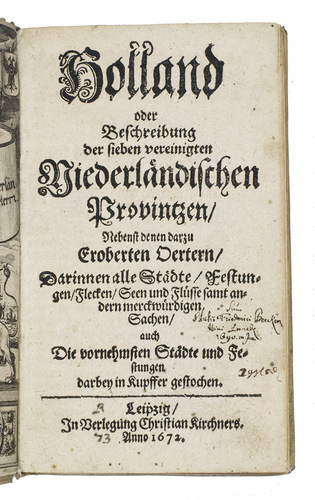 Holland
oder
Beschreibung
der sieben vereinigten
Niederländischen
Provintzen/
Nebenst denen darzu
Eroberten Oertern/
Darinnen alle Städte/ Festun-
gen/ Flecken/ Seen und Flüsse samt an-
dern merckwürdigen
Sachen/
auch
Die vornehmsten Städte und Fe-
stungen
darbey in Kupffer gestochen.
Leipzig/
In Verlegung Christian Kirchners.
Anno 1672.